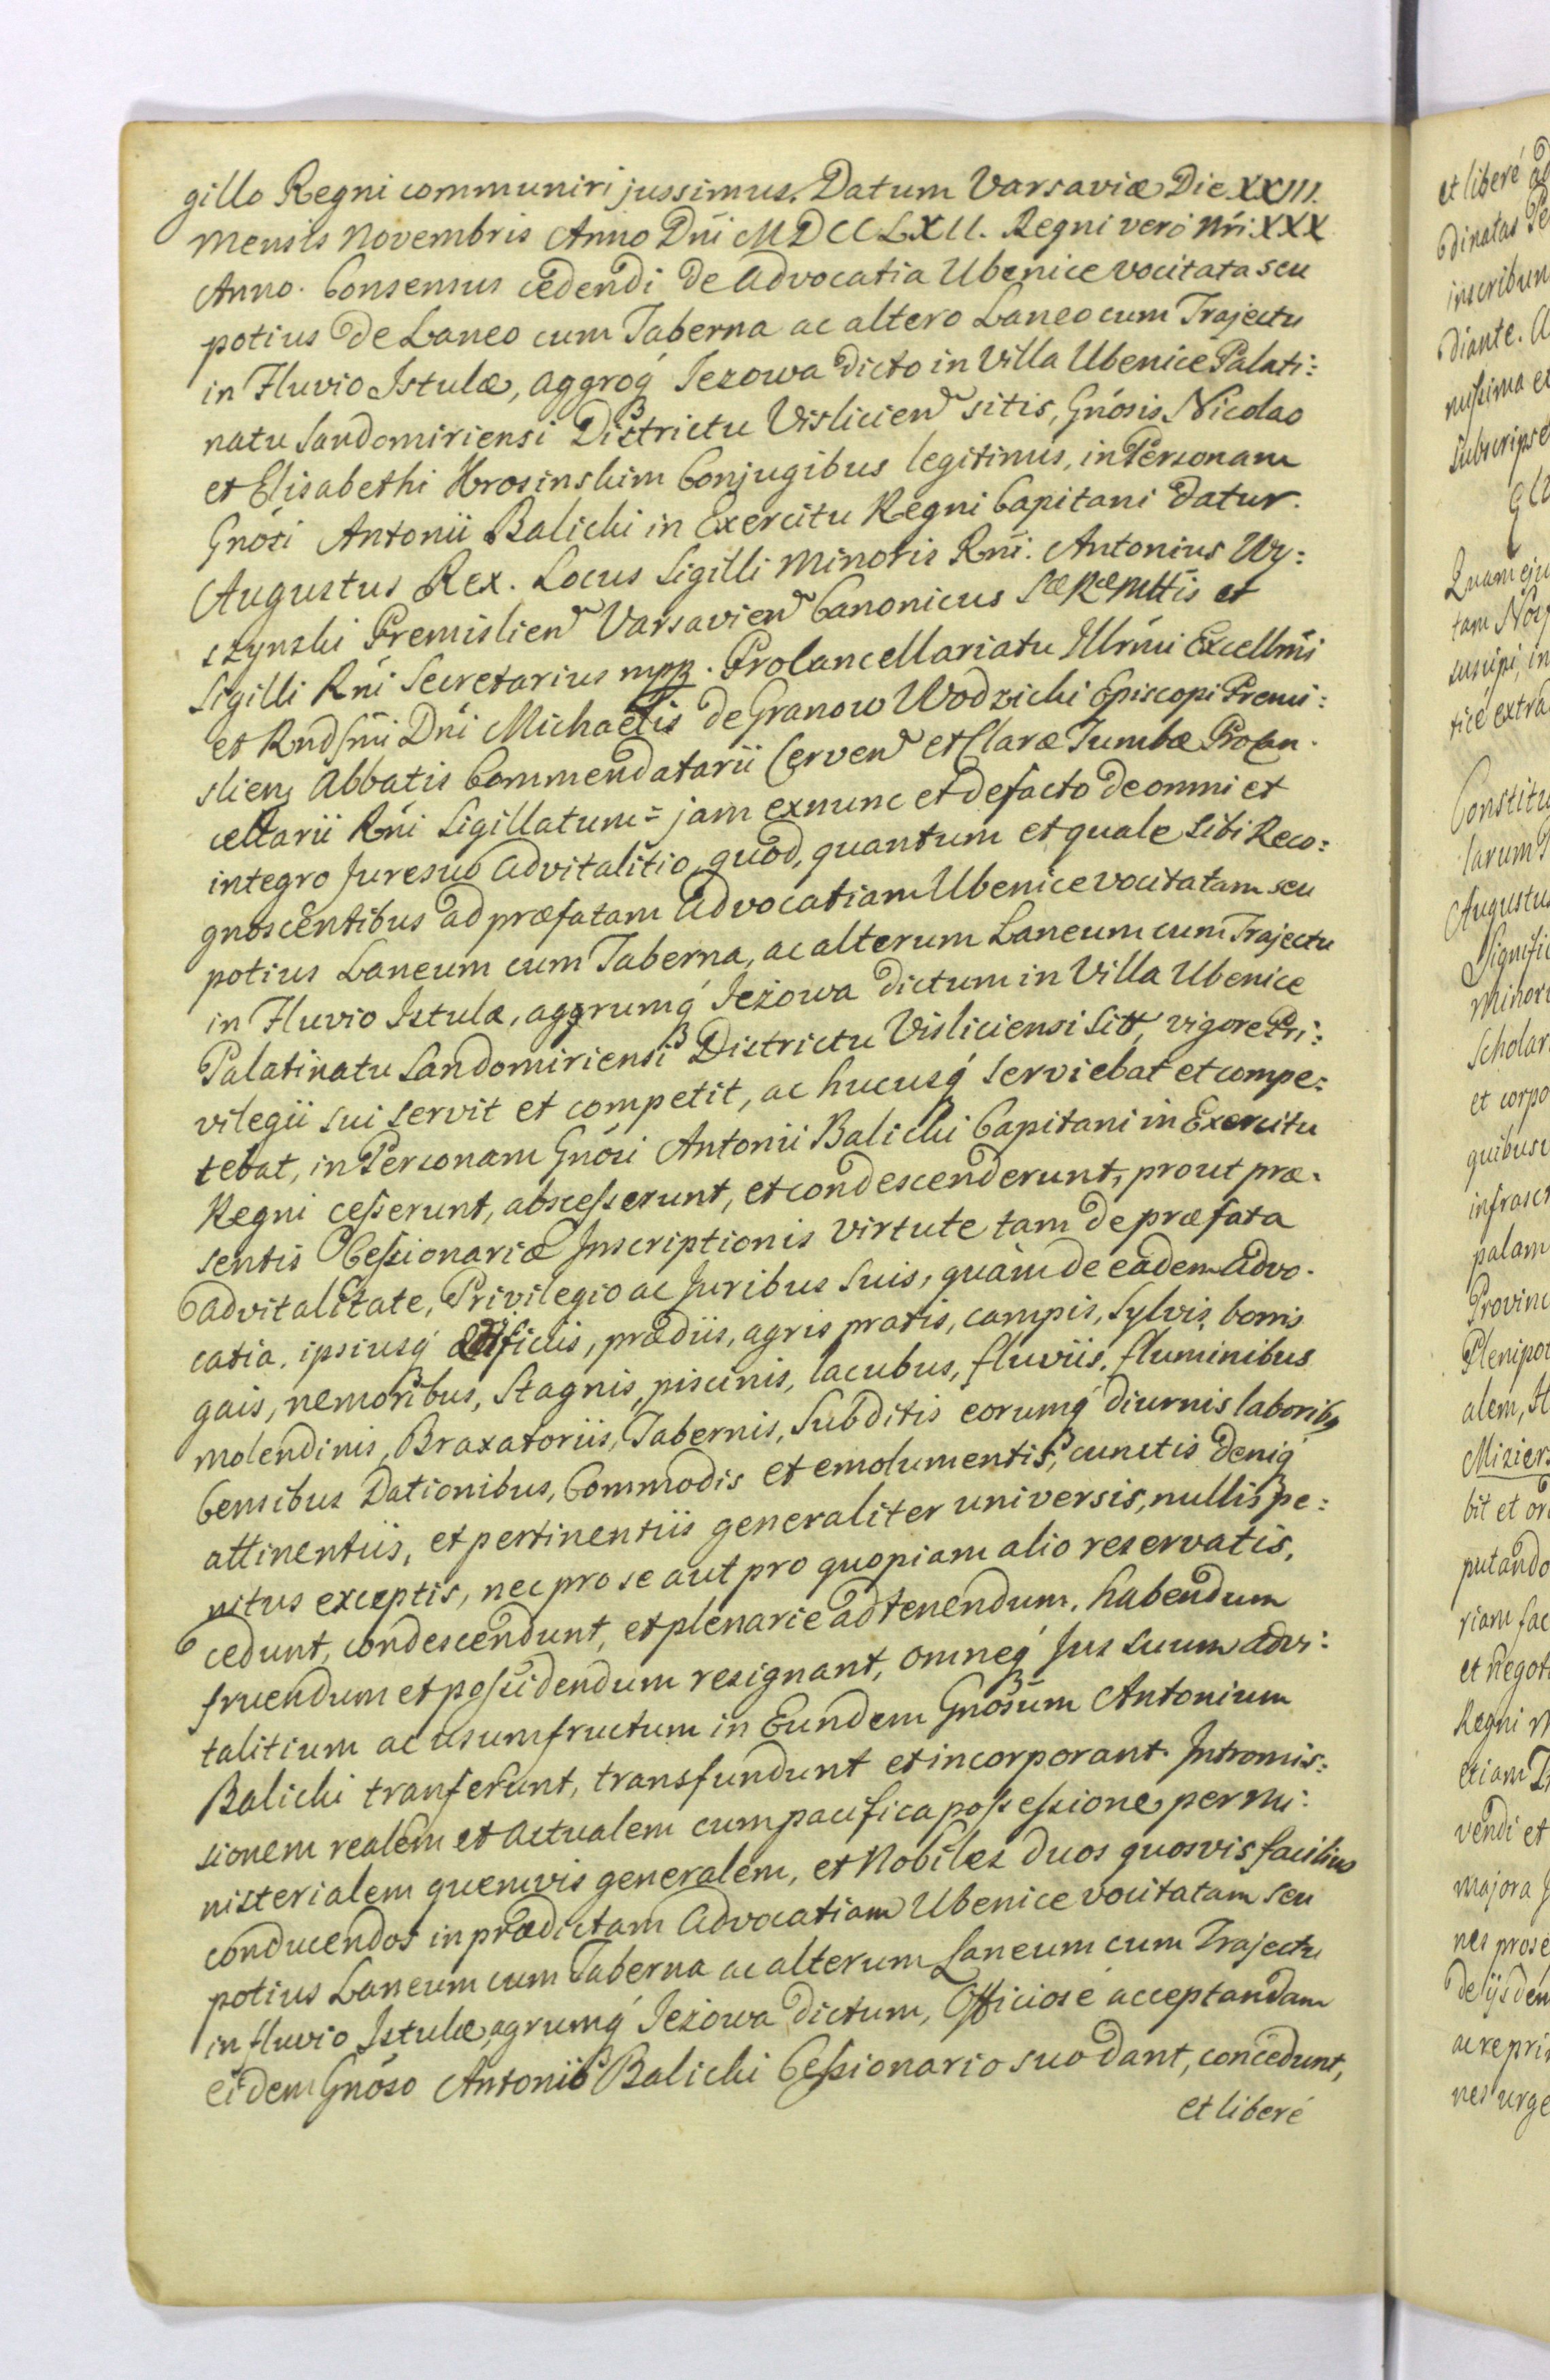 gillo Regni communiri jussimus. Datum Varsaviæ Die XXIII.
Mensis Novembris Anno Dni MDCCLXII. Regni vero Nri XXX
Anno. Consensus cedendi de Advocatia Ubenice vocitata seu
potius de Laneo cum Taberna ac altero Laneo cum Trajectu
in Fluvio Istulæ, aggroq́ Jezowa dicto in Villa Ubenice Palati:
natu Sandomiriensi Districtu Vislicien sitis, Gnósis Nicolao
et Elisabethi Hrosinskim Conjugibus legitimis, in Personam
Gnósi Antonii Balicki in Exercitu Regni Capitani datur.
Augustus Rex. Locus Sigilli Minoris Rni. Antonius Wy:
szynski Premislien Varsavien Canonicus Sæ Ræ Mttis et
Sigilli Rni Secretarius mpp. Procancellariatu Illrmi Excellmi
et Rndssmi Dni Michaelis de Granow Wodzicki Episcopi Premi:
slien, Abbatis Commendatarii Cerven et Claræ Tumbæ Procan:
cellarii Rni Sigillatum = jam exnunc et defacto de omni et
integro Jure suo advitalitio, quod, quantum et quale sibi Reco:
gnoscentibus ad præfatam Advocatiam Ubenice vocitatam seu
potius Laneum cum Taberna, ac alterum Laneum cum Trajectu
in Fluvio Istulæ, aggrumq́ Jeżowa dictum in Villa Ubenice
Palatinatu Sandomiriensi Districtu Visliciensi Sitt, vigore Pri:
vilegii sui servit et competit, ac hucusq́ serviebat et compe:
tebat, in Personam Gnósi Antonii Balicki Capitani in Exercitu
Regni cesserunt, abscesserunt, et condescenderunt, prout præ:
sentis Cessionariæ Inscriptionis virtute tam de præfata
advitalitate, Privilegio ac Juribus suis, quàm de eadem Advo:
catia, ipsiusq́ ædificiis, prædiis, agris pratis, campis, sylvis, borris
gais, nemoribus, Stagnis, piscinis, lacubus, fluviis, fluminibus
molendinis, Braxatoriis, Tabernis, Subditis eorumq́ diurnis laboribq
Censibus Dationibus, Commodis et emolumentis, cunctis deniq́
attinentiis, et pertinentiis generaliter universis, nullis pe:
nitus exceptis, nec pro se aut pro quopiam alio reservatis,
cedunt, condescendunt, et plenarie ad tenendum, habendum
fruendum et possidendum resignant, omneq́ Jus suum advi:
talitium ac usumfructum in Eundem Gnósum Antonium
Balicki tranferunt, transfundunt et incorporant. Intromis:
sionem realem et actualem cum pacifica possessione per Mi:
nisterialem quemvis generalem, et Nobiles duos quosvis facilius
conducendos in prædictam Advocatiam Ubenice vocitatam seu
potius Laneum cum Taberna ac alterum Laneum cum Trajectu
in fluvio Istulæ, agrumq́ Jeżowa dictum, Officiosé acceptandam
eidem Gnóso Antonio Balicki Cessionario suo dant, concedunt,
et liberé
et liberé ad
inscribun
diante. A
subscripse
Quam eju
Constitu
larum
Augustus
Signific
Minori
Scholar
et corpo
quibusv
infrascr
palam
Provinc
Plenipot
alem,
bit et or
putando
riam fac
et negot
Regni M
etiam
vendi et
majora
nes prose
de ijsdem
ac repri
nes urge